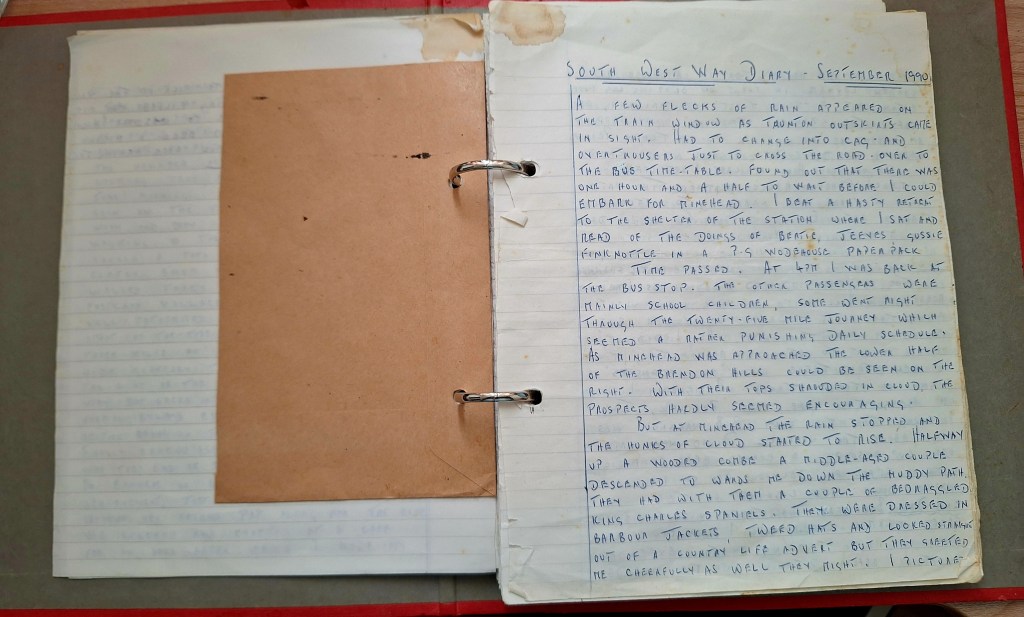 SOUTH WEST WAY DIARY - SEPTEMBER 1990
A FEW FLECKS OF RAIN APPEARED ON
THE TRAIN WINDOW AS TAUNTON OUTSKIRTS CAME
IN SIGHT. HAD TO CHANGE INTO CAG AND
OVERTROUSERS JUST TO CROSS THE ROAD OVER TO
THE BUS TIME-TABLE. FOUND OUT THAT THERE WAS
ONE HOUR AND A HALF TO WAIT BEFORE I COULD
EMBARK FOR MINEHEAD. I BEAT A HASTY RETREAT
TO THE SHELTER OF THE STATION WHERE I SAT AND
READ OF THE DOINGS OF BERTIE, JEEVES, GUSSIE
FINKNOTTLE IN A P.G WODEHOUSE PAPERPACK
TIME PASSED. AT 4PM I WAS BACK AT
THE BUS STOP. THE OTHER PASSENGERS WERE
MAINLY SCHOOL CHILDREN, SOME WENT RIGHT
THROUGH THE TWENTY-FIVE MILE JOURNEY WHICH
SEEMED A RATHER PUNISHING DAILY SCHEDULE.
AS MINEHEAD WAS APPROACHED THE LOWER HALF
OF THE BRENDON HILLS COULD BE SEEN ON THE
RIGHT. WITH THEIR TOPS SHROUDED IN CLOUD, THE
PROSPECTS HARDLY SEEMED ENCOURAGING.
BUT AT MINEHEAD THE RAIN STOPPED AND
THE HUNKS OF CLOUD STARTED TO RISE. HALFWAY
UP A WOODED COMBE A MIDDLE-AGED COUPLE
DESCENDED TOWARDS ME DOWN THE MUDDY PATH.
THEY HAD WITH THEM A COUPLE OF BEDRAGGLED
KING CHARLES SPANIELS. THEY WERE DRESSED IN
BARBOUR JACKETS, TWEED HATS AND LOOKED STRAIGHT
OUT OF A COUNTRY LIFE ADVERT BUT THEY GREETED
ME CHEERFULLY AS WELL THEY MIGHT. I PICTURE